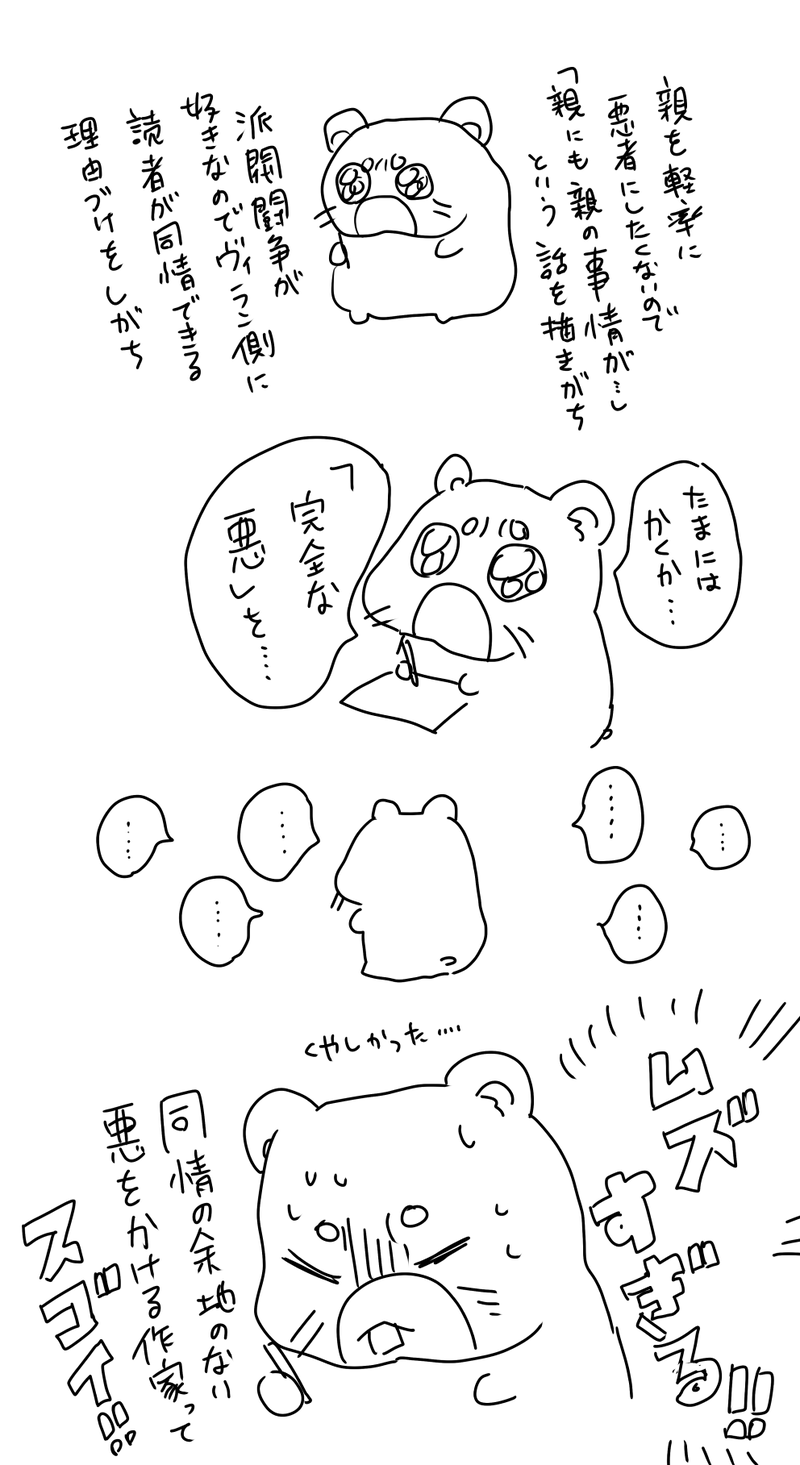 親を軽率に
悪者にしたくないので
「親にも親の事情が…」
という話を描きがち
派閥闘争が
好きなのでヴィラン側に
読者が同情できる
理由づけをしがち
たまには
かくか…
「完全な
悪」を…
……
……
……
……
……
……
くやしかった…
ムズ
すぎる!!
同情の余地のない
悪をかける作家って
スゴイ!!